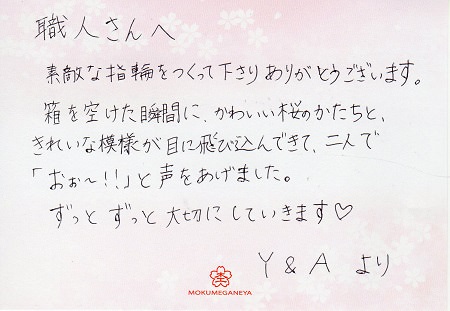 職人さんへ
素敵な指輪をつくって下さりありがとうございます。
箱を空けた瞬間に、かわいい桜のかたちと、
きれいな模様が目に飛び込んできて、二人で
「おぉ〜!!」と声をあげました。
ずっと ずっと 大切にしていきます♡
Y & A より
MOKUMEGANEYA